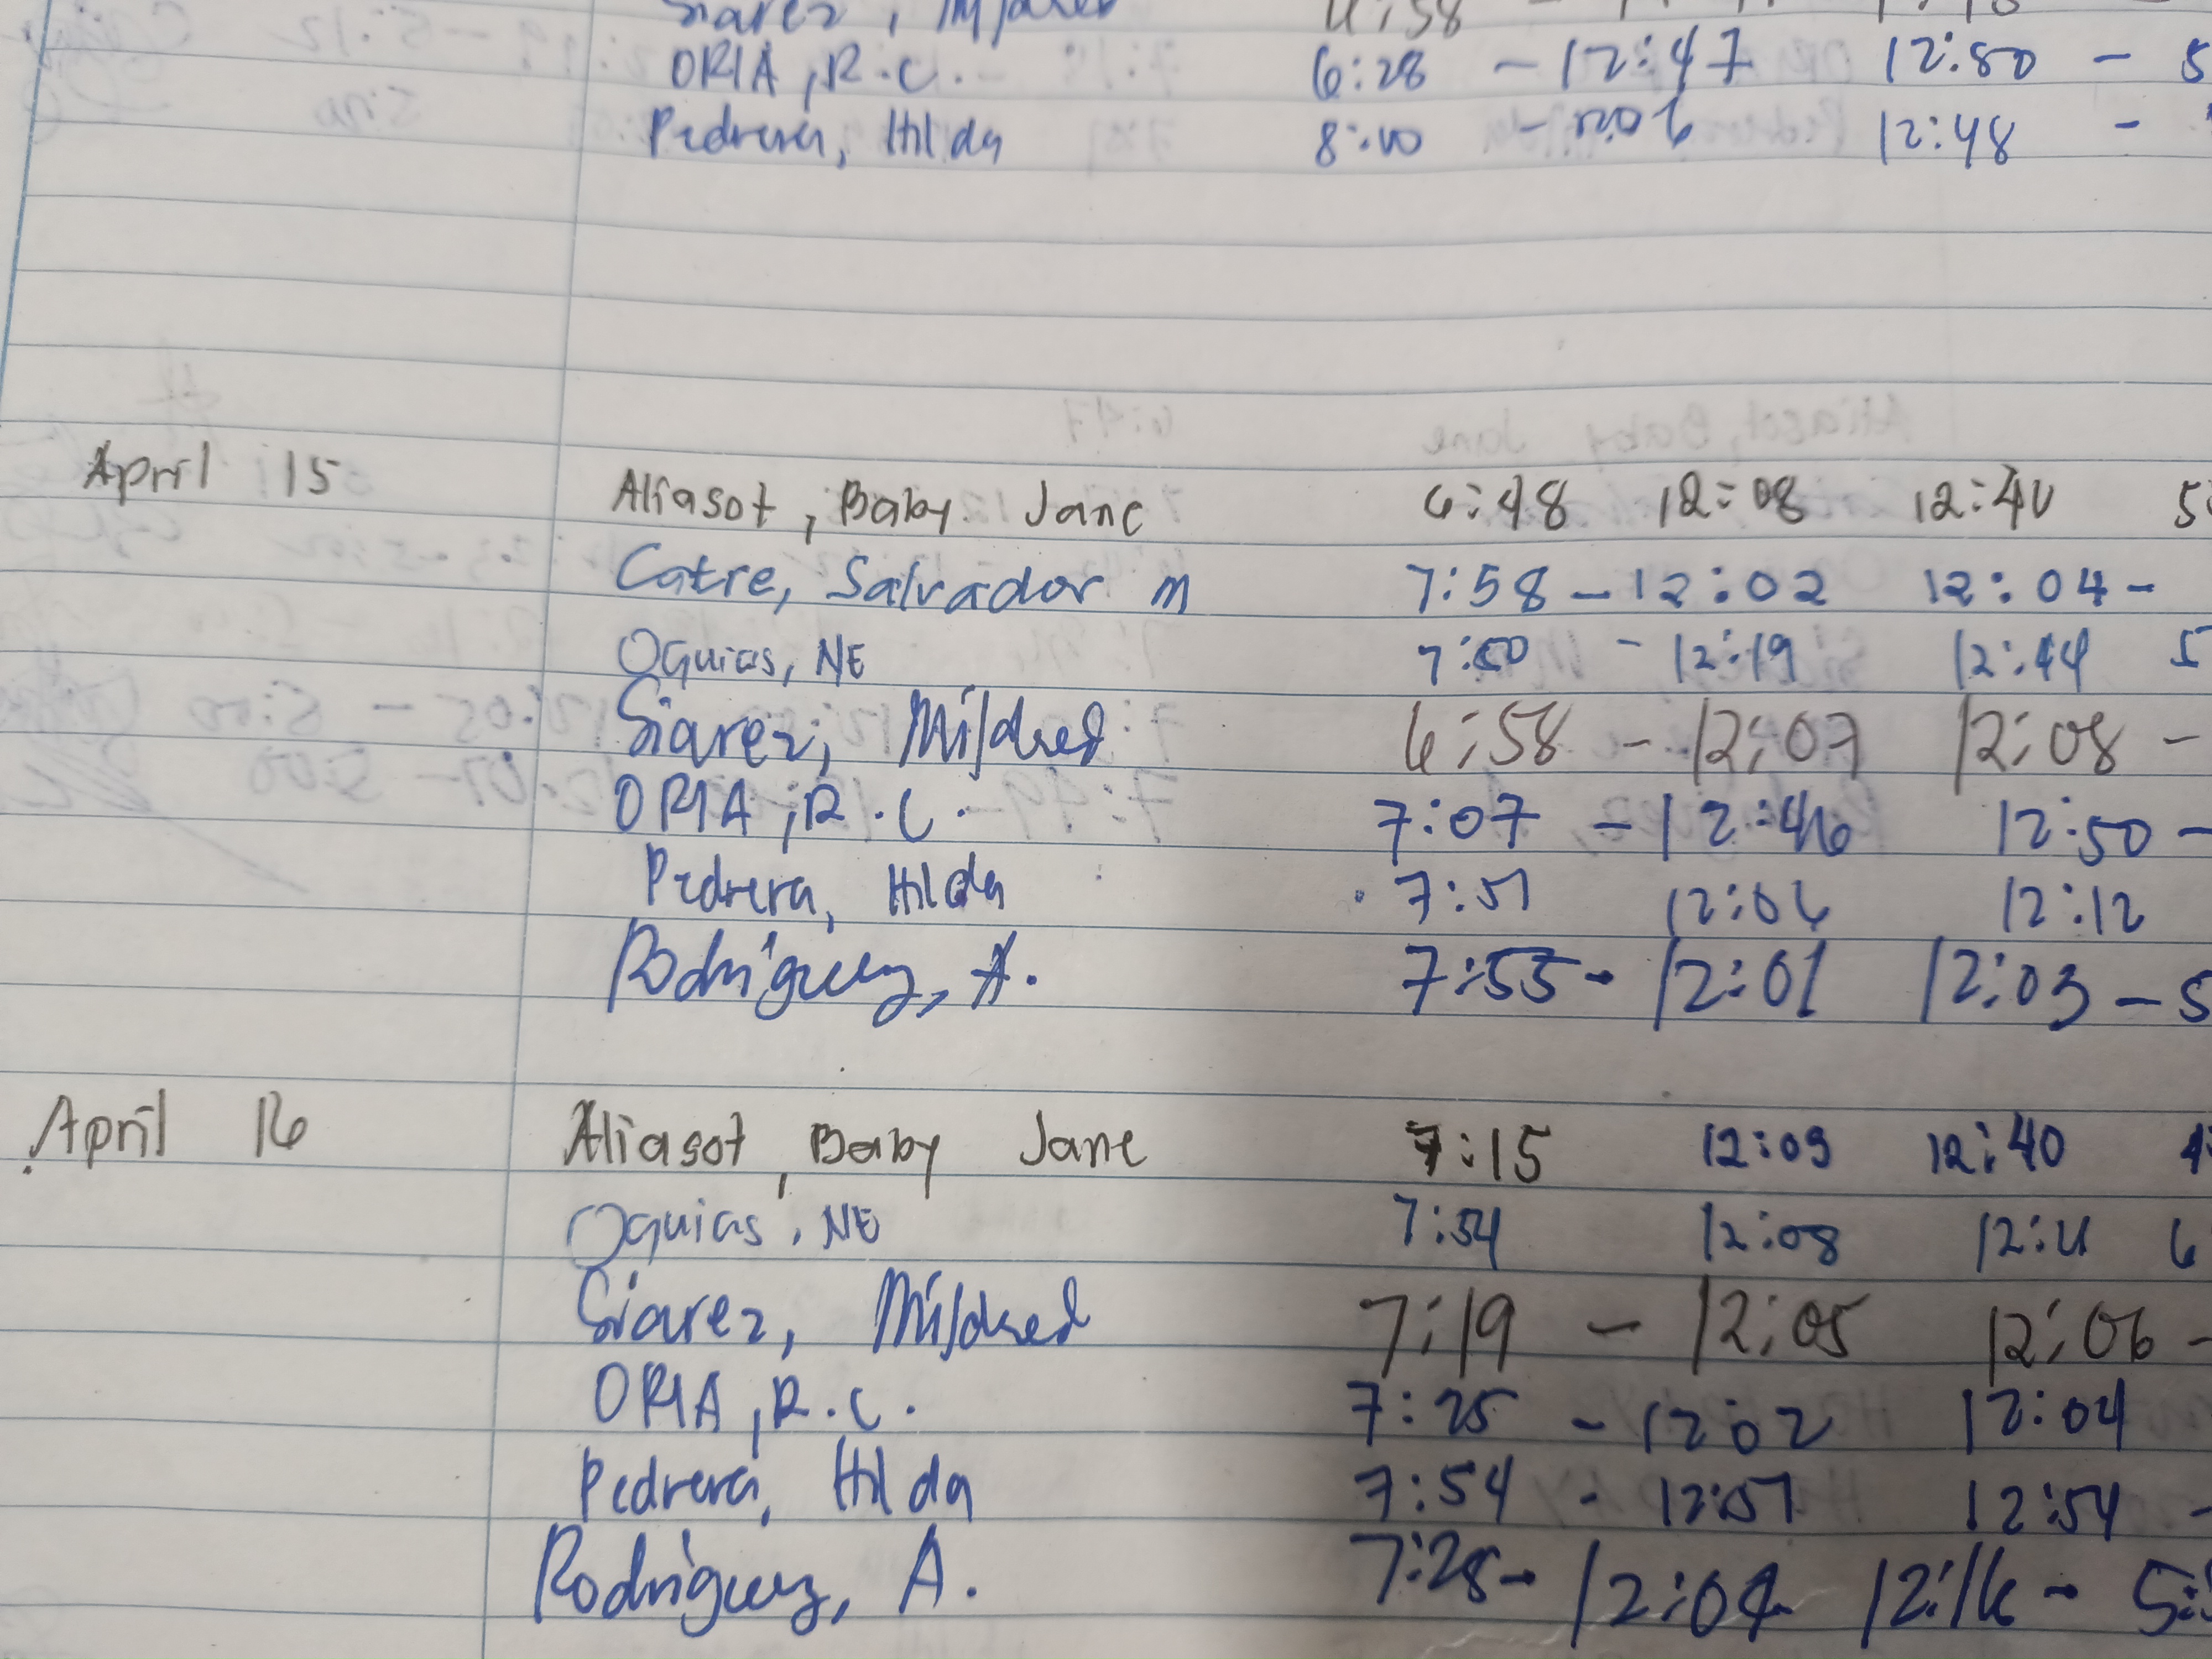 Siarez, Mildred 6:58
ORIA, R.C. 6:28 - 12:47 12:50 - 5
Pedrera, Hilda 8:00 - 12:06 12:48 -
April 15 Aliasot, Baby Jane 6:48 12:08 12:40 5:
Catre, Salvador M 7:58 - 12:02 12:04 -
Oguias, NE 7:50 - 12:19 12:44 5
Siarez, Mildred 6:58 - 12:07 12:08 -
ORIA, R.C. 7:07 - 12:46 12:50 -
Pedrera, Hilda 7:51 12:06 12:12
Rodriguez, A. 7:55 - 12:01 12:03 - 5
April 16 Aliasot, Baby Jane 7:15 12:09 12:40 4:
Oguias, NE 7:54 12:08 12:11 6
Siarez, Mildred 7:19 - 12:05 12:06 -
ORIA, R.C. 7:25 - 12:02 12:04
Pedrera, Hilda 7:54 - 12:51 12:54 -
Rodriguez, A. 7:28 - 12:04 12:16 - 5: